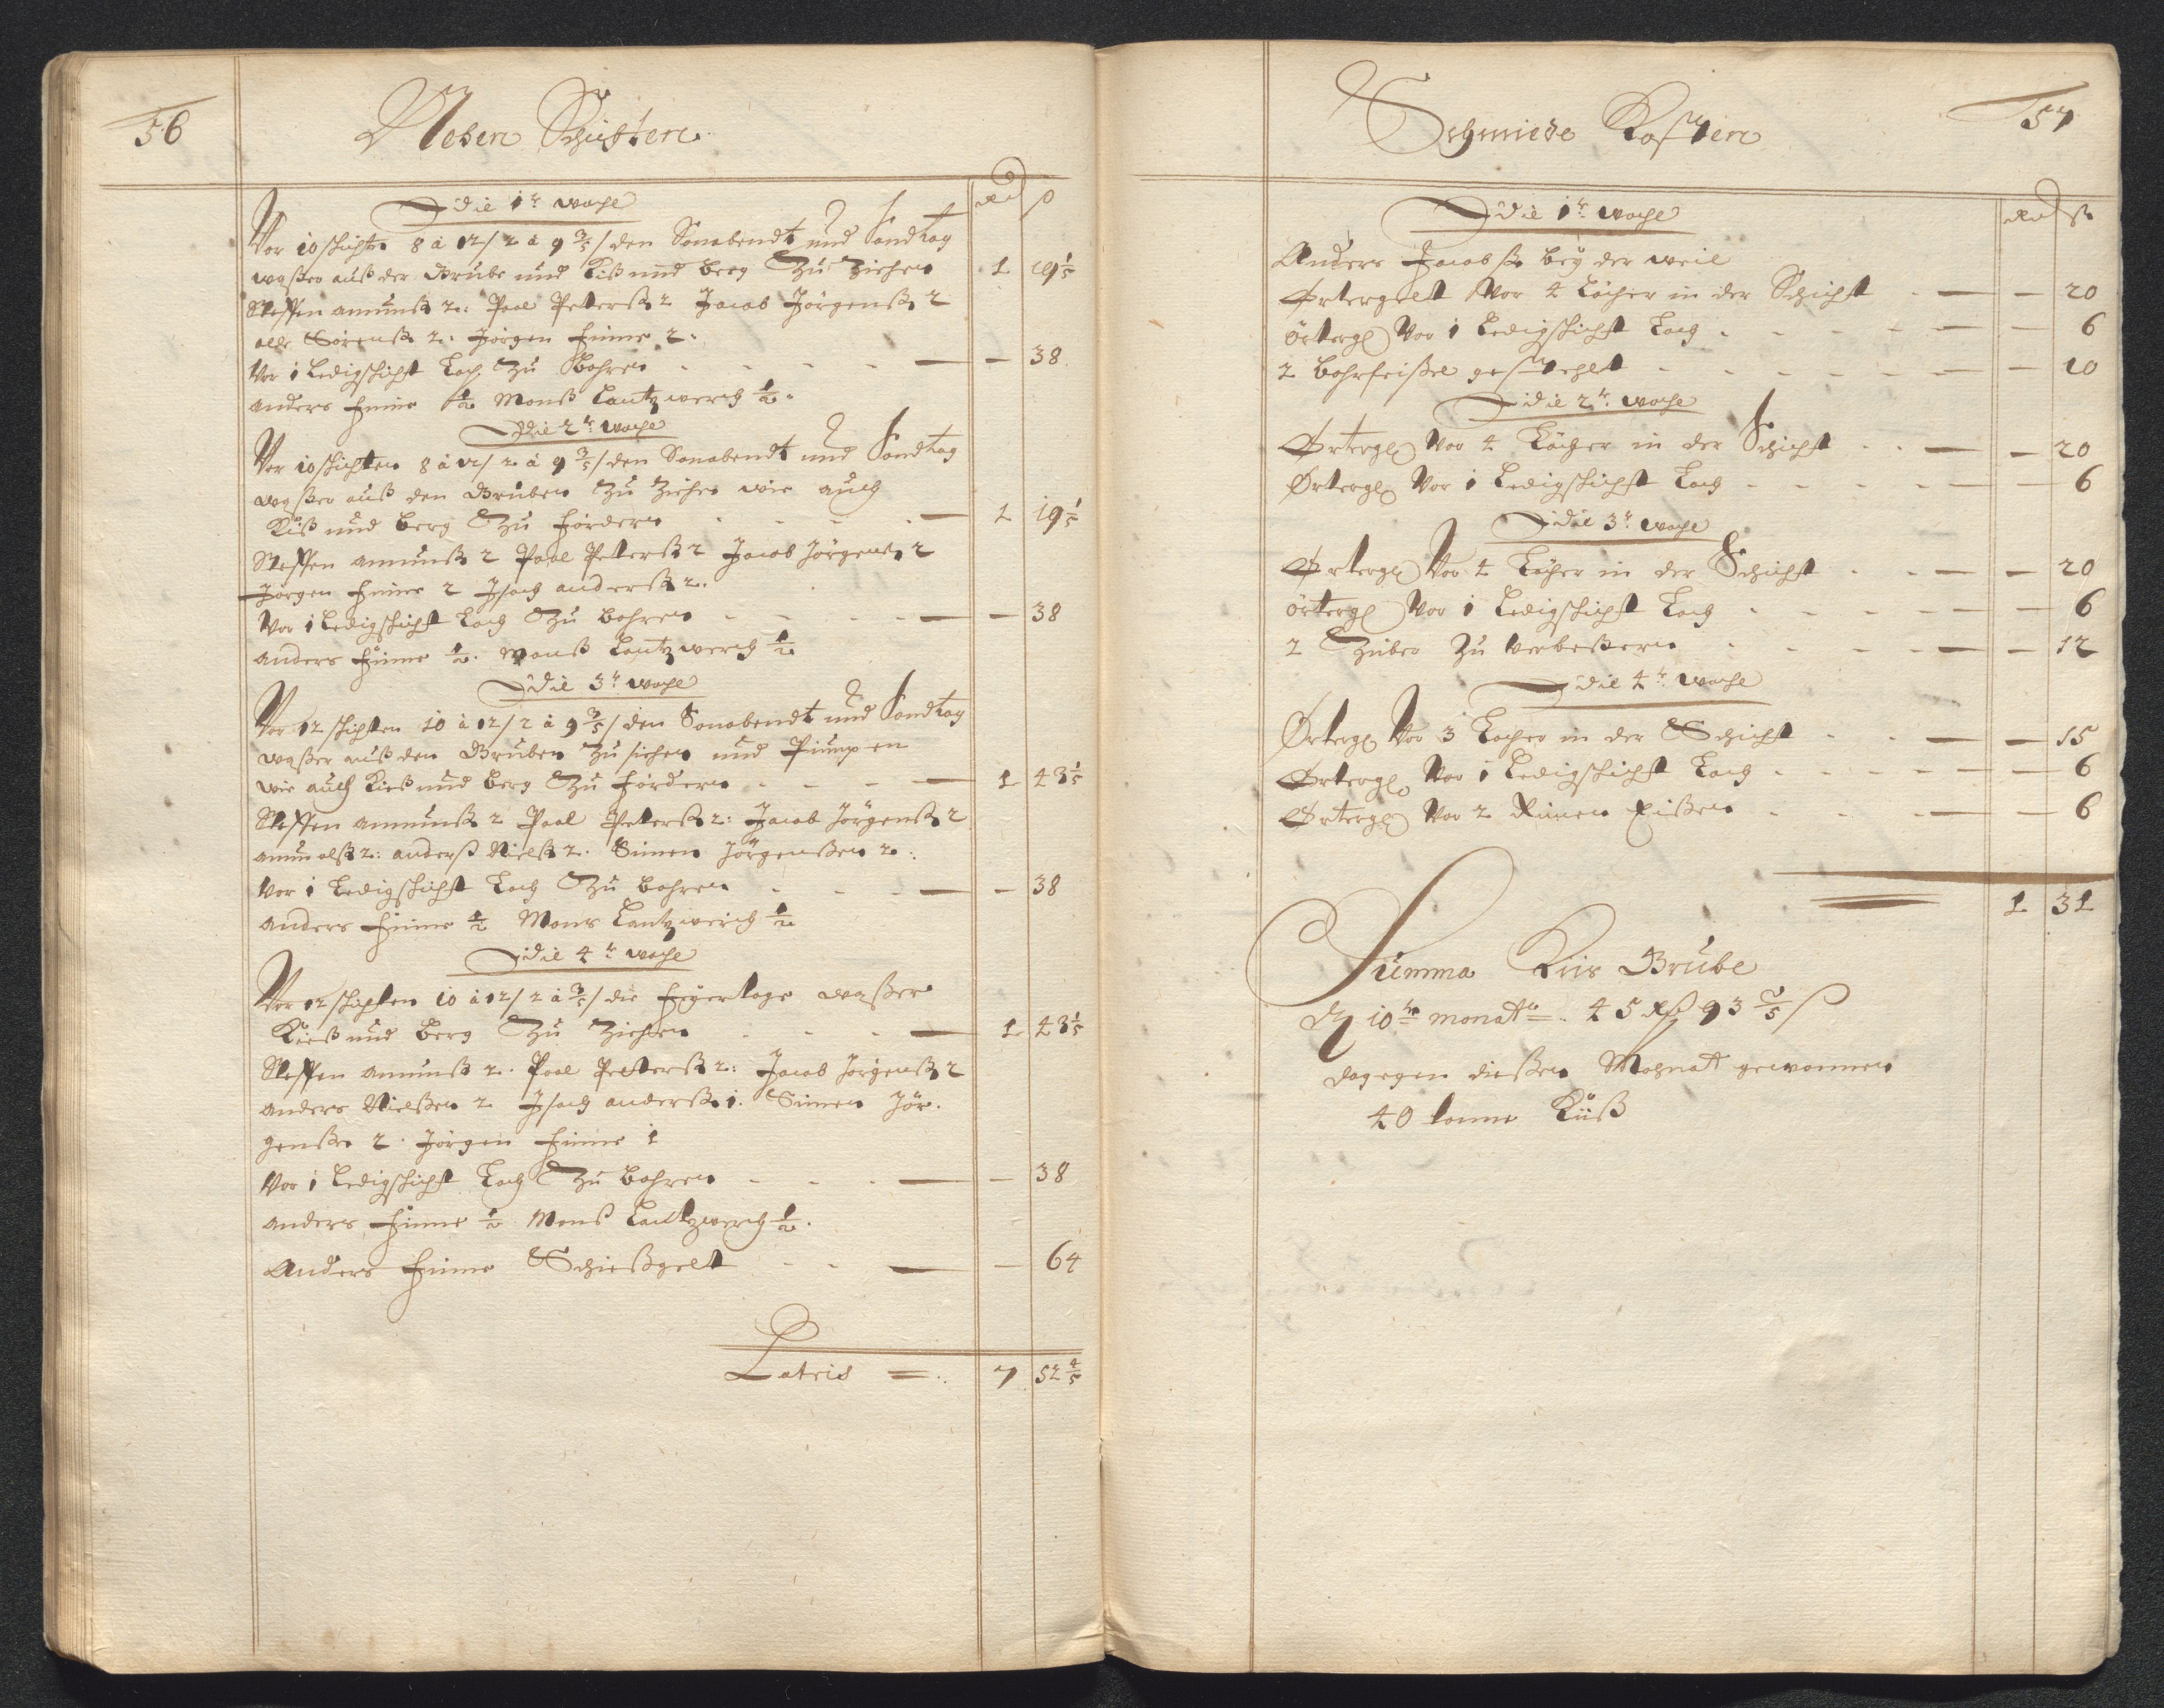 56
Neben Schichten
Rd ß
Die 1te woche
Vor 10 schichten 8 à 12/ 2 à 9 3/5/ den Sonabendt und Sondtag
waßer auß der Grube und Kiß und berg Zu Ziehen 1 19 1/5
Steffen amunß 2: Poel Peterß 2 Jacob Jörgenß 2
olle Sörenß 2: Jörgen finne 2:
Vor 1 Ledigschicht Loch Zu Bohren — 38
anders finne 1/2 Monß Lantzwerch 1/2
Die 2te woche
Vor 10 schichten 8 à 12/ 2 à 9 3/5/ den Sonabendt und Sondtag
waßer auß den Gruben Zu Ziehen wie auch
Kiß und berg Zu fördern — 1 19 1/5
Steffen amunß 2 Poel Peterß 2 Jacob Jörgenß 2
Jörgen finne 2 Isach anderß 2.
Vor 1 Ledigschicht Loch Zu bohren — 38
anders finne 1/2. Monß Lantzwerch 1/2
Die 3te woche
Vor 12 schichten 10 à 12/ 2 à 9 3/5/ den Sonabendt und Sondtag
waßer auß den Gruben Zu siehen und Pumpen
wie auch Kieß und berg Zu fördern — 1 43 1/5
Steffen amunß 2 Poel Peterß 2: Jacob Jörgenß 2
amun olß 2: anderß Nielß 2. Simen Jörgenßen 2.
Vor 1 Ledigschicht Loch Zu bohren — 38
anders finne 1/2 Mons Lantzwerch 1/2
Die 4te woche
Vor 12 schichten 10 à 12/ 2 à 3/5/ die feyertage waßer
Kieß und berg Zu Ziehen — 1 43 1/5
Steffen amunß 2. Poel Peterß 2: Jacob Jörgenß 2
anders Nielßen 2 Isach anderß 1. Simen Jör.
genßen 2. Jörgen finne 1
Vor 1 Ledigschicht Loch Zu bohren — 38
anders finne 1/2 Monß Lantzwerch 1/2.
Anders finne Schießgelt — 64
Latris = 7 52 4/5
57
Schmiede Kosten
Rd ß
Die 1te woche
Anders Jacobß bey der weil
Örtergelt Vor 4 Löcher in der Schicht — 20
örtergl Vor 1 Ledigschicht Loch — 6
2 bohrfeißel gestehlt — 10
Die 2te woche
Örtergl Vor 4 Löcher in der Schicht — 20
Örtergl Vor 1 Ledigschicht Loch — 6
Die 3te woche
Örtergl Vor 4 Löcher in der Schicht — 20
örtergl Vor 1 Ledigschicht Loch — 6
2 Züber Zu Verbeßern — 12
Die 4te woche
Örtergl Vor 3 Locher in der Schicht — 15
Örtergl Vor 1 Ledigschicht Loch — 6
Örtergl Vor 2 Rimen Eißen — 6
1 31
Summa Kris Grube
10te monatt = 45 Rß 93 2/5 ß
dagegen dießen Mohnatt gewonnen
40 tonne Kiiß